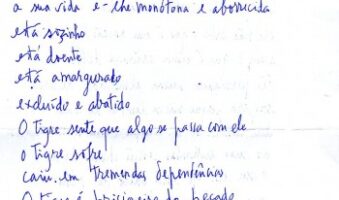 a sua vida é-lhe monótona e aborrecida
está sozinho
está doente
está amargurado
excluído e abatido
O tigre sente que algo se passa com ele
o tigre sofre
caiu em tremendas dependências
O tigre é prisioneiro do pecado